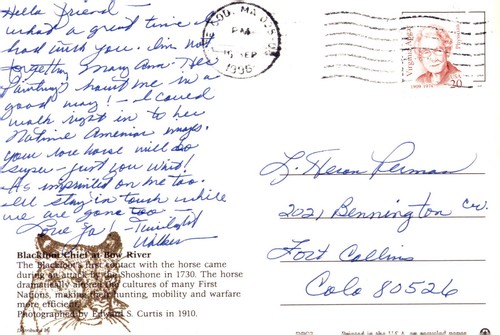 Hello Friend -
What a great time I
had with you. I'm not
forgetting Mary Ann. Her
Paintings haunt me in a
good way! - I could
walk right in to her
Native American images.
your love horse will do
super - just you wait!
As imprinted on me too.
I'll stay in touch while
we are gone too.
Love Ya! - Twilight
Walker
Blackfoot Chief at Bow River
The Blackfoot's first contact with the horse came
during an attack by the Shoshone in 1730. The horse
dramatically altered the cultures of many First
Nations, making their hunting, mobility and warfare
more efficient.
Photographed by Edward S. Curtis in 1910.
COD, MA
PM
15 SEP
1996
Virginia Apgar
1909-1974
20
L. Heron Perman
2021 Bennington Cir.
Fort Collins
Colo 80526